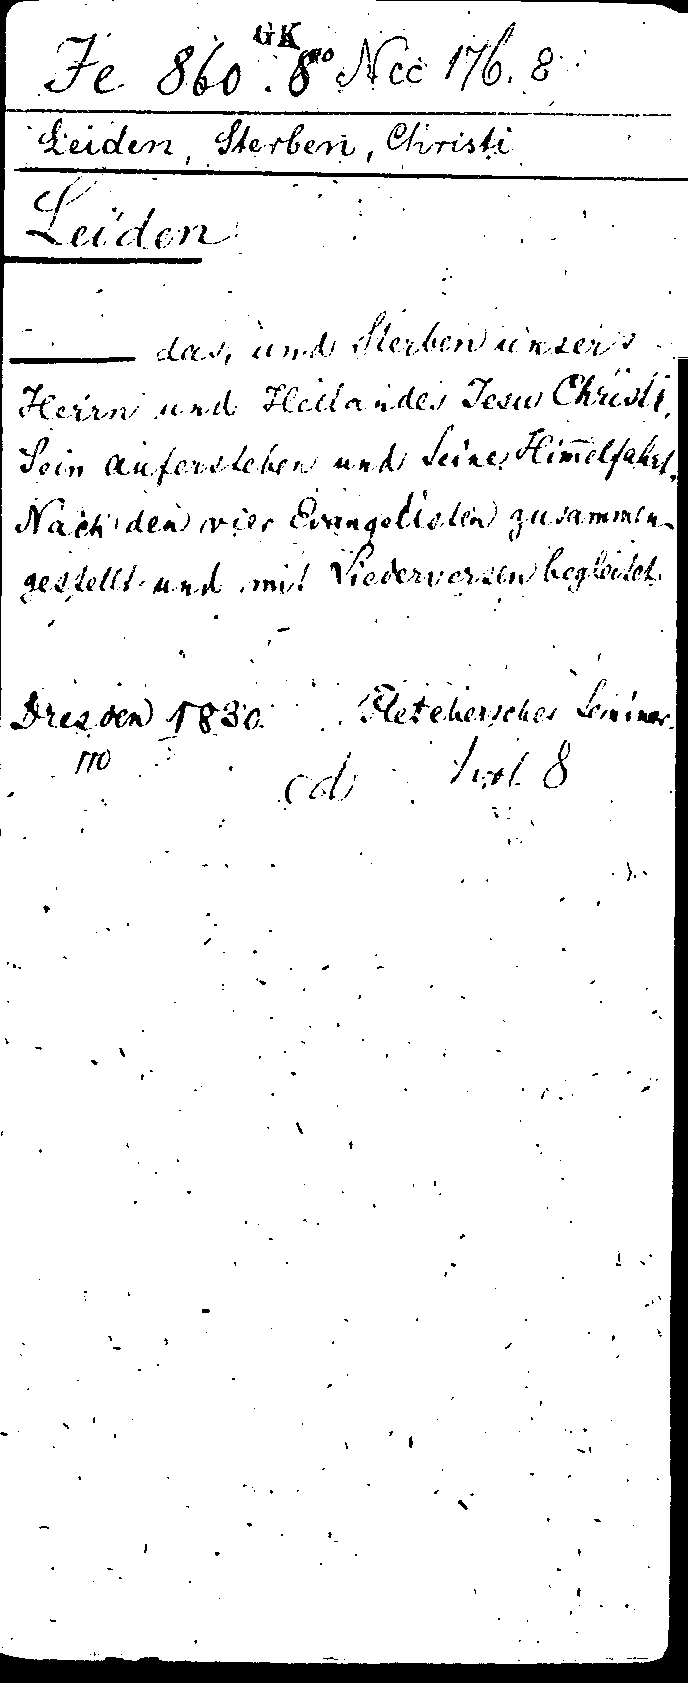 GK
Fe 860. 8⁰ Ncc 176. 8
Leiden, Sterben, Christi
Leiden
—— das, und Sterben unsers
Herrn und Heilandes Jesu Christi,
Sein Auferstehen und Seine Him̅elfahrt.
Nach den vier Evangelisten zusammen-
gestellt und mit Liederversen begleitet.
Dresden 1830. Fletchersches Seminar.
1 vol. 8